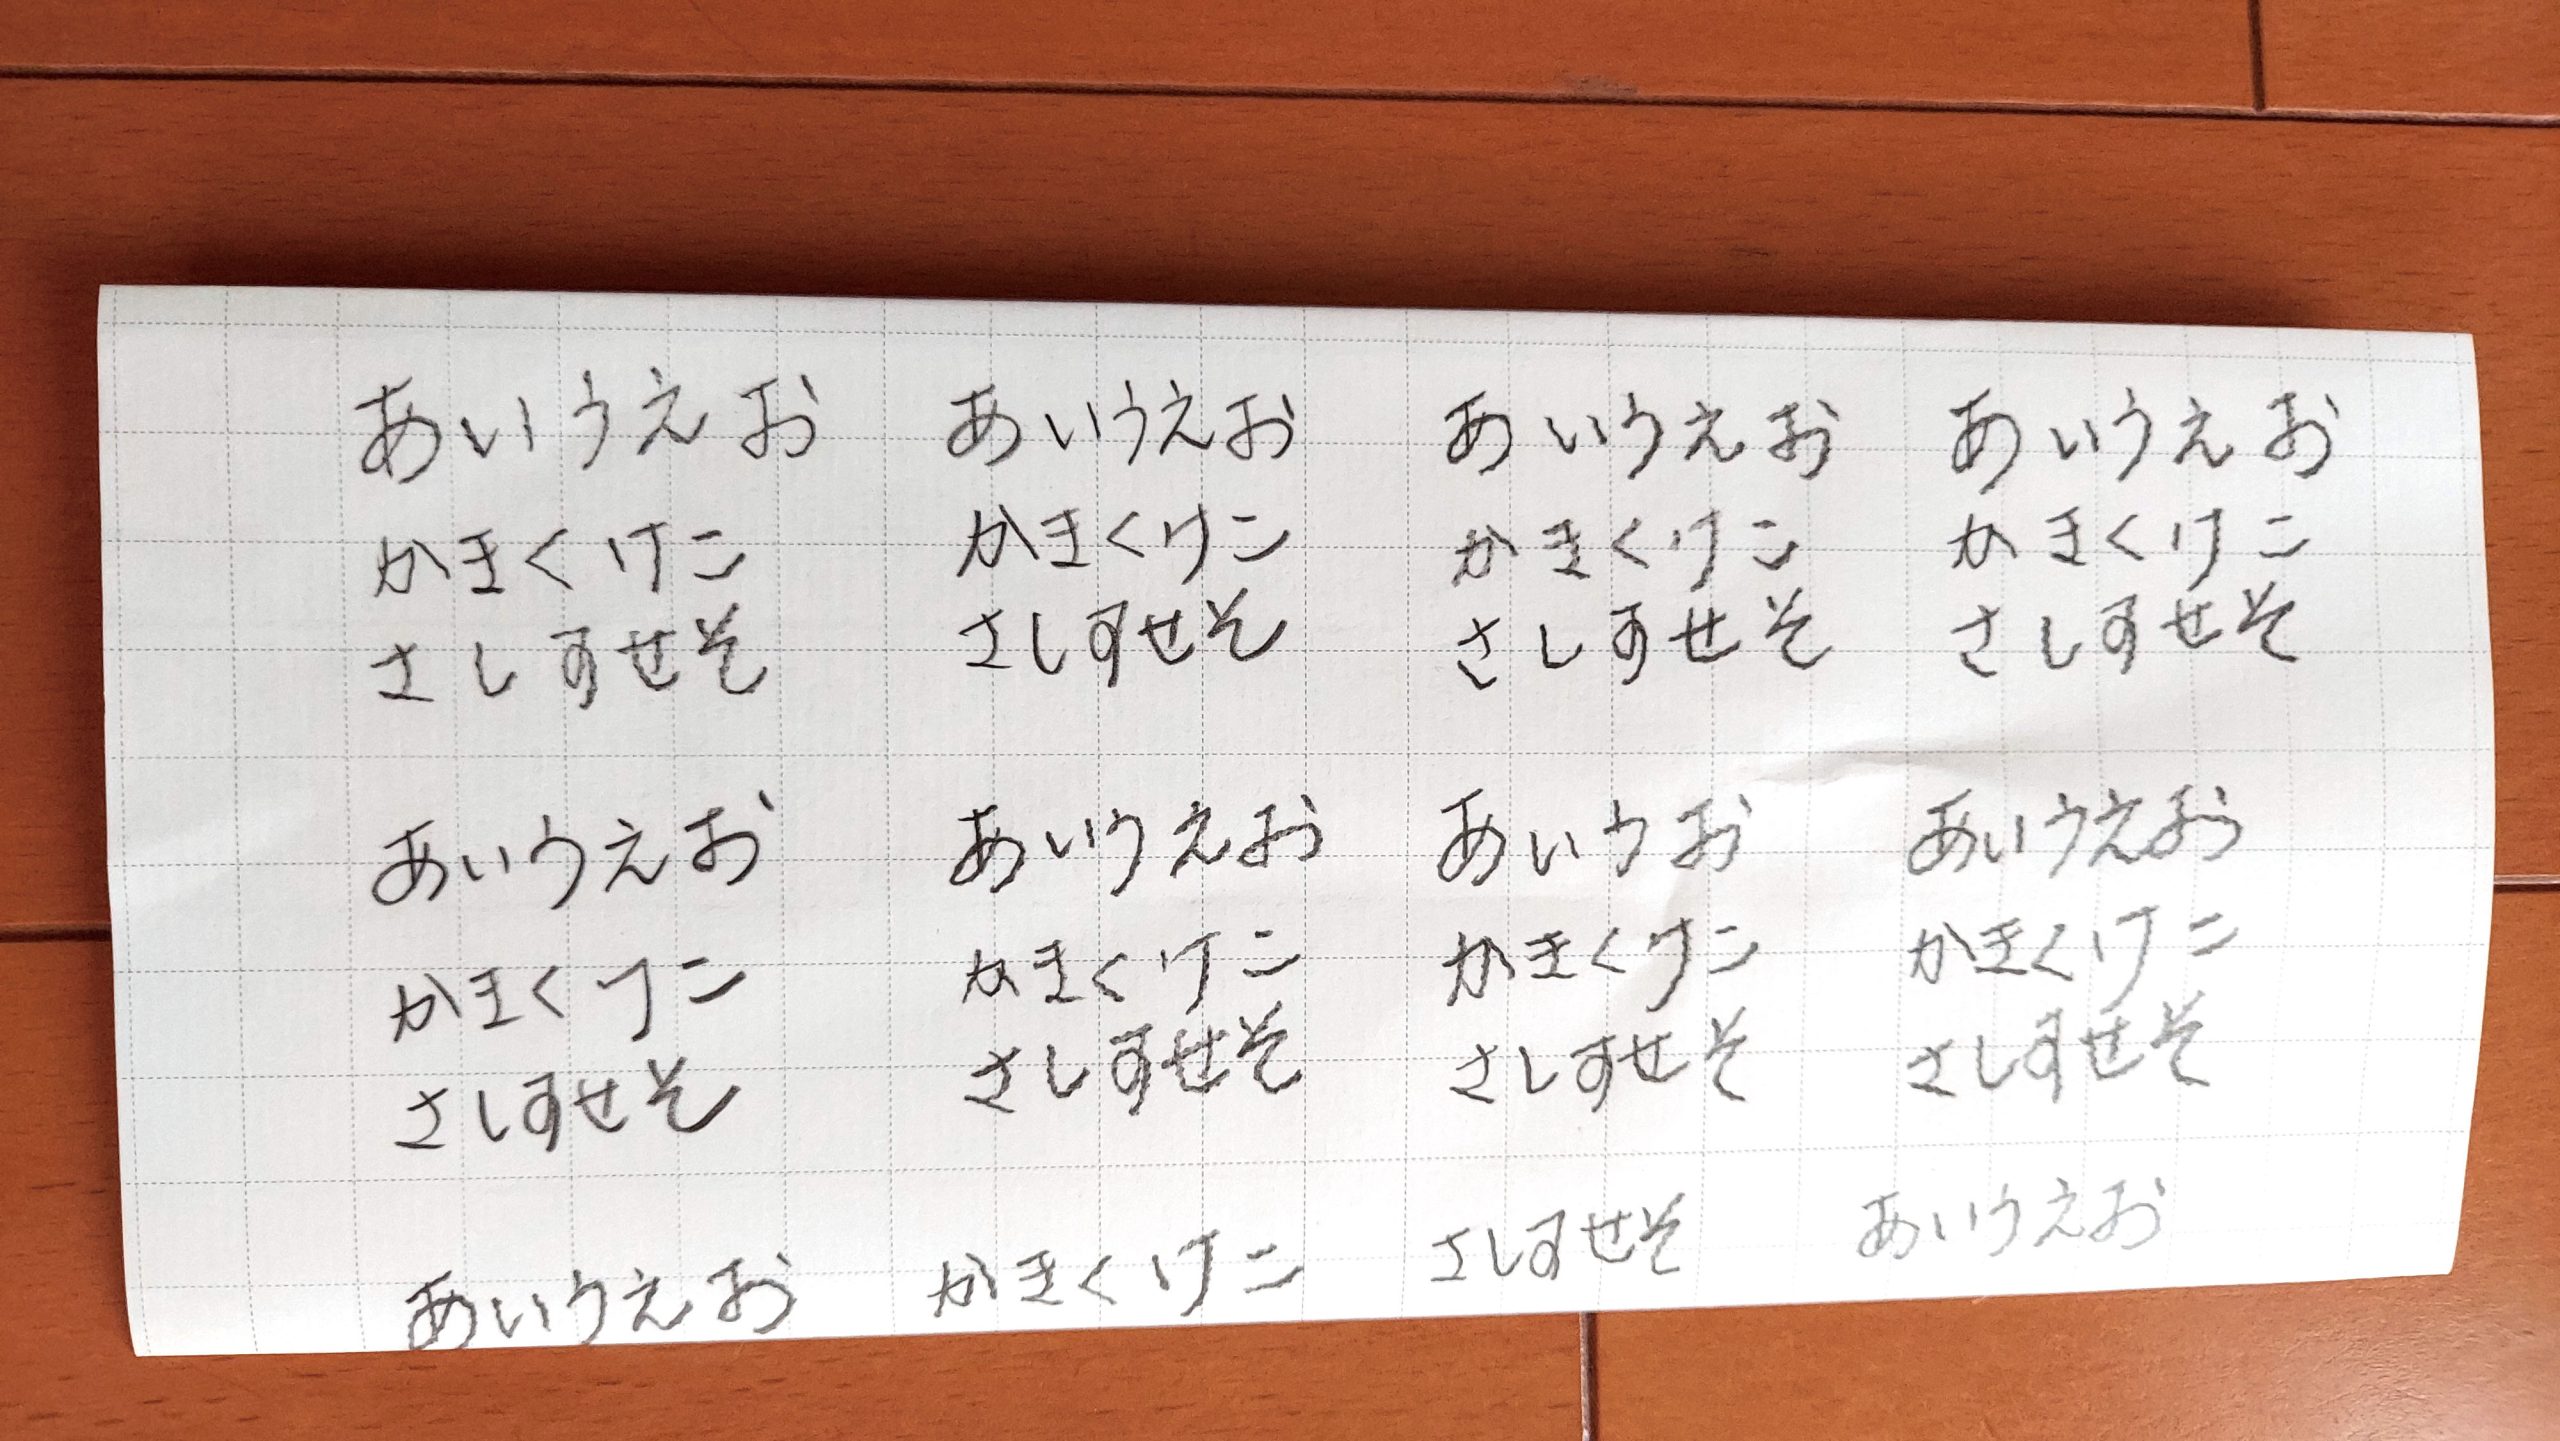 あいうえお あいうえお あいうえお あいうえお
かきくけこ かきくけこ かきくけこ かきくけこ
さしすせそ さしすせそ さしすせそ さしすせそ
あいうえお あいうえお あいうお あいうえお
かきくけこ かきくけこ かきくけこ かきくけこ
さしすせそ さしすせそ さしすせそ さしすせそ
あいうえお かきくけこ さしすせそ あいうえお